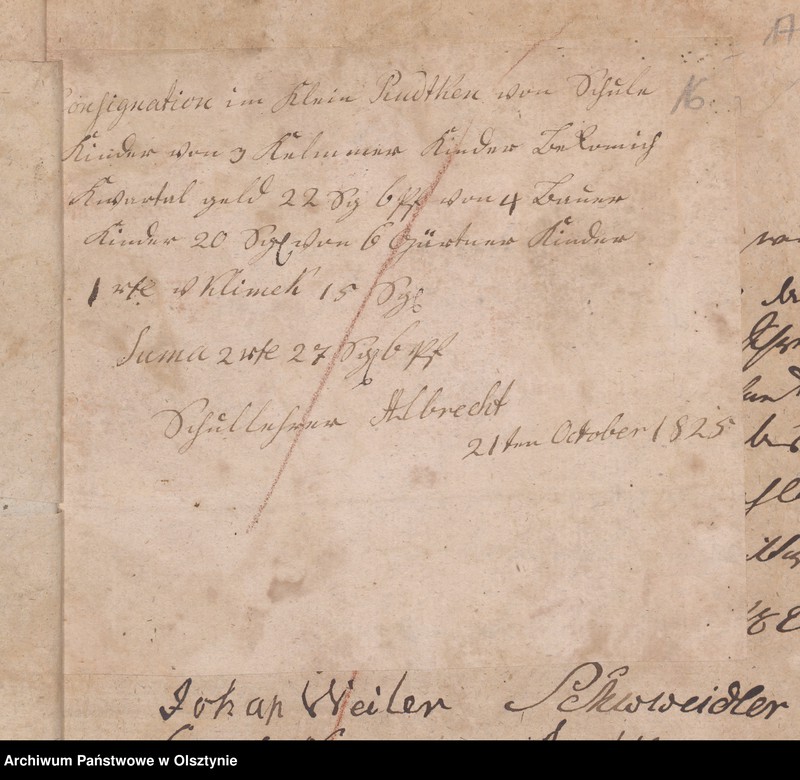 Consignation im Klein Rudtken von Schule
16
Kinder von 3 Kelmmer Kinder Bekomich
Kwartal geld 22 Sg 6 Pf von 4 Bauer
Kinder 20 Sg von 6 Gärtner Kinder
1 rtl v Klimek 15 Sg
Suma 2 rtl 27 Sg 6 Pf
Schullehrer Albrecht
21ten October 1825
Johan Weiler Schwweidler
Archiwum Państwowe w Olsztynie